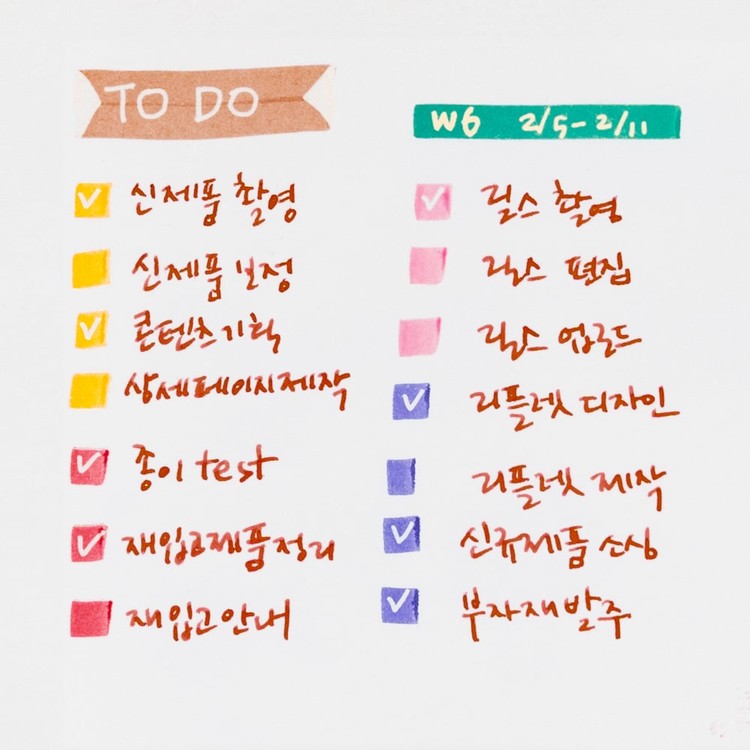 TO DO
신제품 촬영
신제품 보정
콘텐츠기획
상세페이지제작
종이 test
재입고제품정리
재입고안내
W6 2/5-2/11
릴스 촬영
릴스 편집
릴스 업로드
리플렛 디자인
리플렛 제작
신규제품 소싱
부자재발주